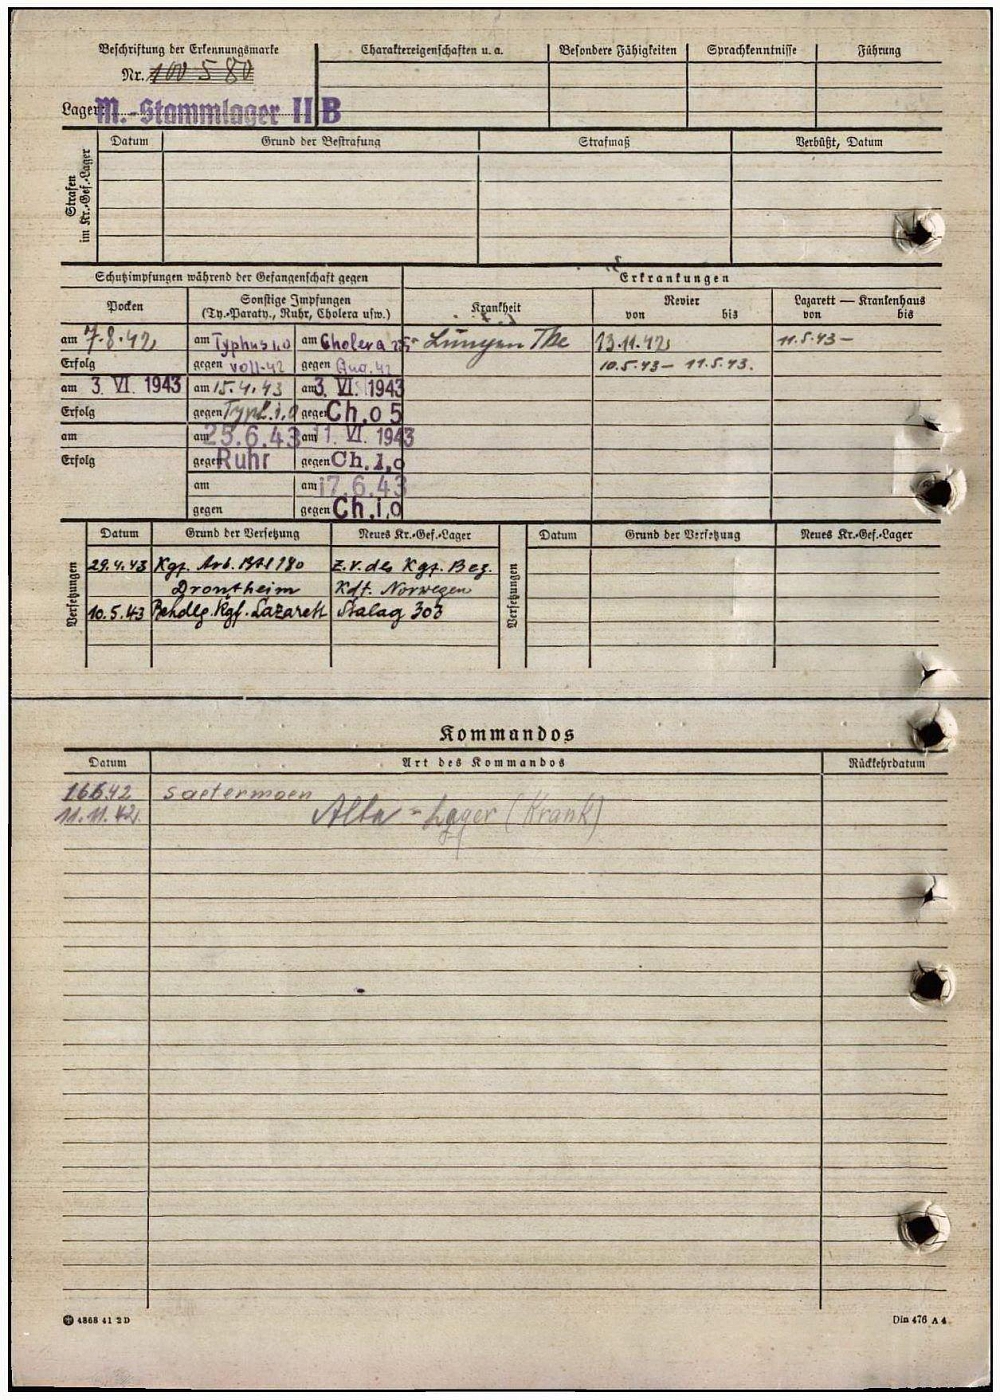 Beschriftung der Erkennungsmarke
Nr. 100580
Lager: M.-Stammlager II B
Charaktereigenschaften u. a.
Besondere Fähigkeiten
Sprachkenntnisse
Führung
Strafen im Kr.-Gef.-Lager
Datum
Grund der Bestrafung
Strafmaß
Verbüßt, Datum
Schutzimpfungen während der Gefangenschaft gegen
Erkrankungen
Pocken
Sonstige Impfungen
(Ty.-Paraty., Ruhr, Cholera usw.)
Krankheit
Revier
von bis
Lazarett — Krankenhaus
von bis
am 7.8.42 am Typhus 1,0 am Cholera Lungen Tbc 13.11.42 11.5.43 –
Erfolg gegen voll-42 gegen Aug. 42 10.5.43 – 11.5.43.
am 3. VI. 1943 am 15.4.43 am 3. VI. 1943
Erfolg gegen Typh. 1,0 gegen Ch. 0 5
am am 25.6.43 am 11. VI. 1943
Erfolg gegen Ruhr gegen Ch. 1,0
am am 17.6.43
gegen gegen Ch. 1,0
Versetzungen
Datum Grund der Versetzung Neues Kr.-Gef.-Lager
Versetzungen
Datum Grund der Versetzung Neues Kr.-Gef.-Lager
29.4.43 Kgf. Arb. Btl 180 z. V. des Kgf. Bez.
Drontheim Kdt. Norwegen
10.5.43 Behdlg. Kgf. Lazarett Stalag 303
Kommandos
Datum Art des Kommandos Rückkehrdatum
16.6.42 saetermoen
11.11.42. Alta - Lager (Krank)
4868 41 2 D
Din 476 A 4